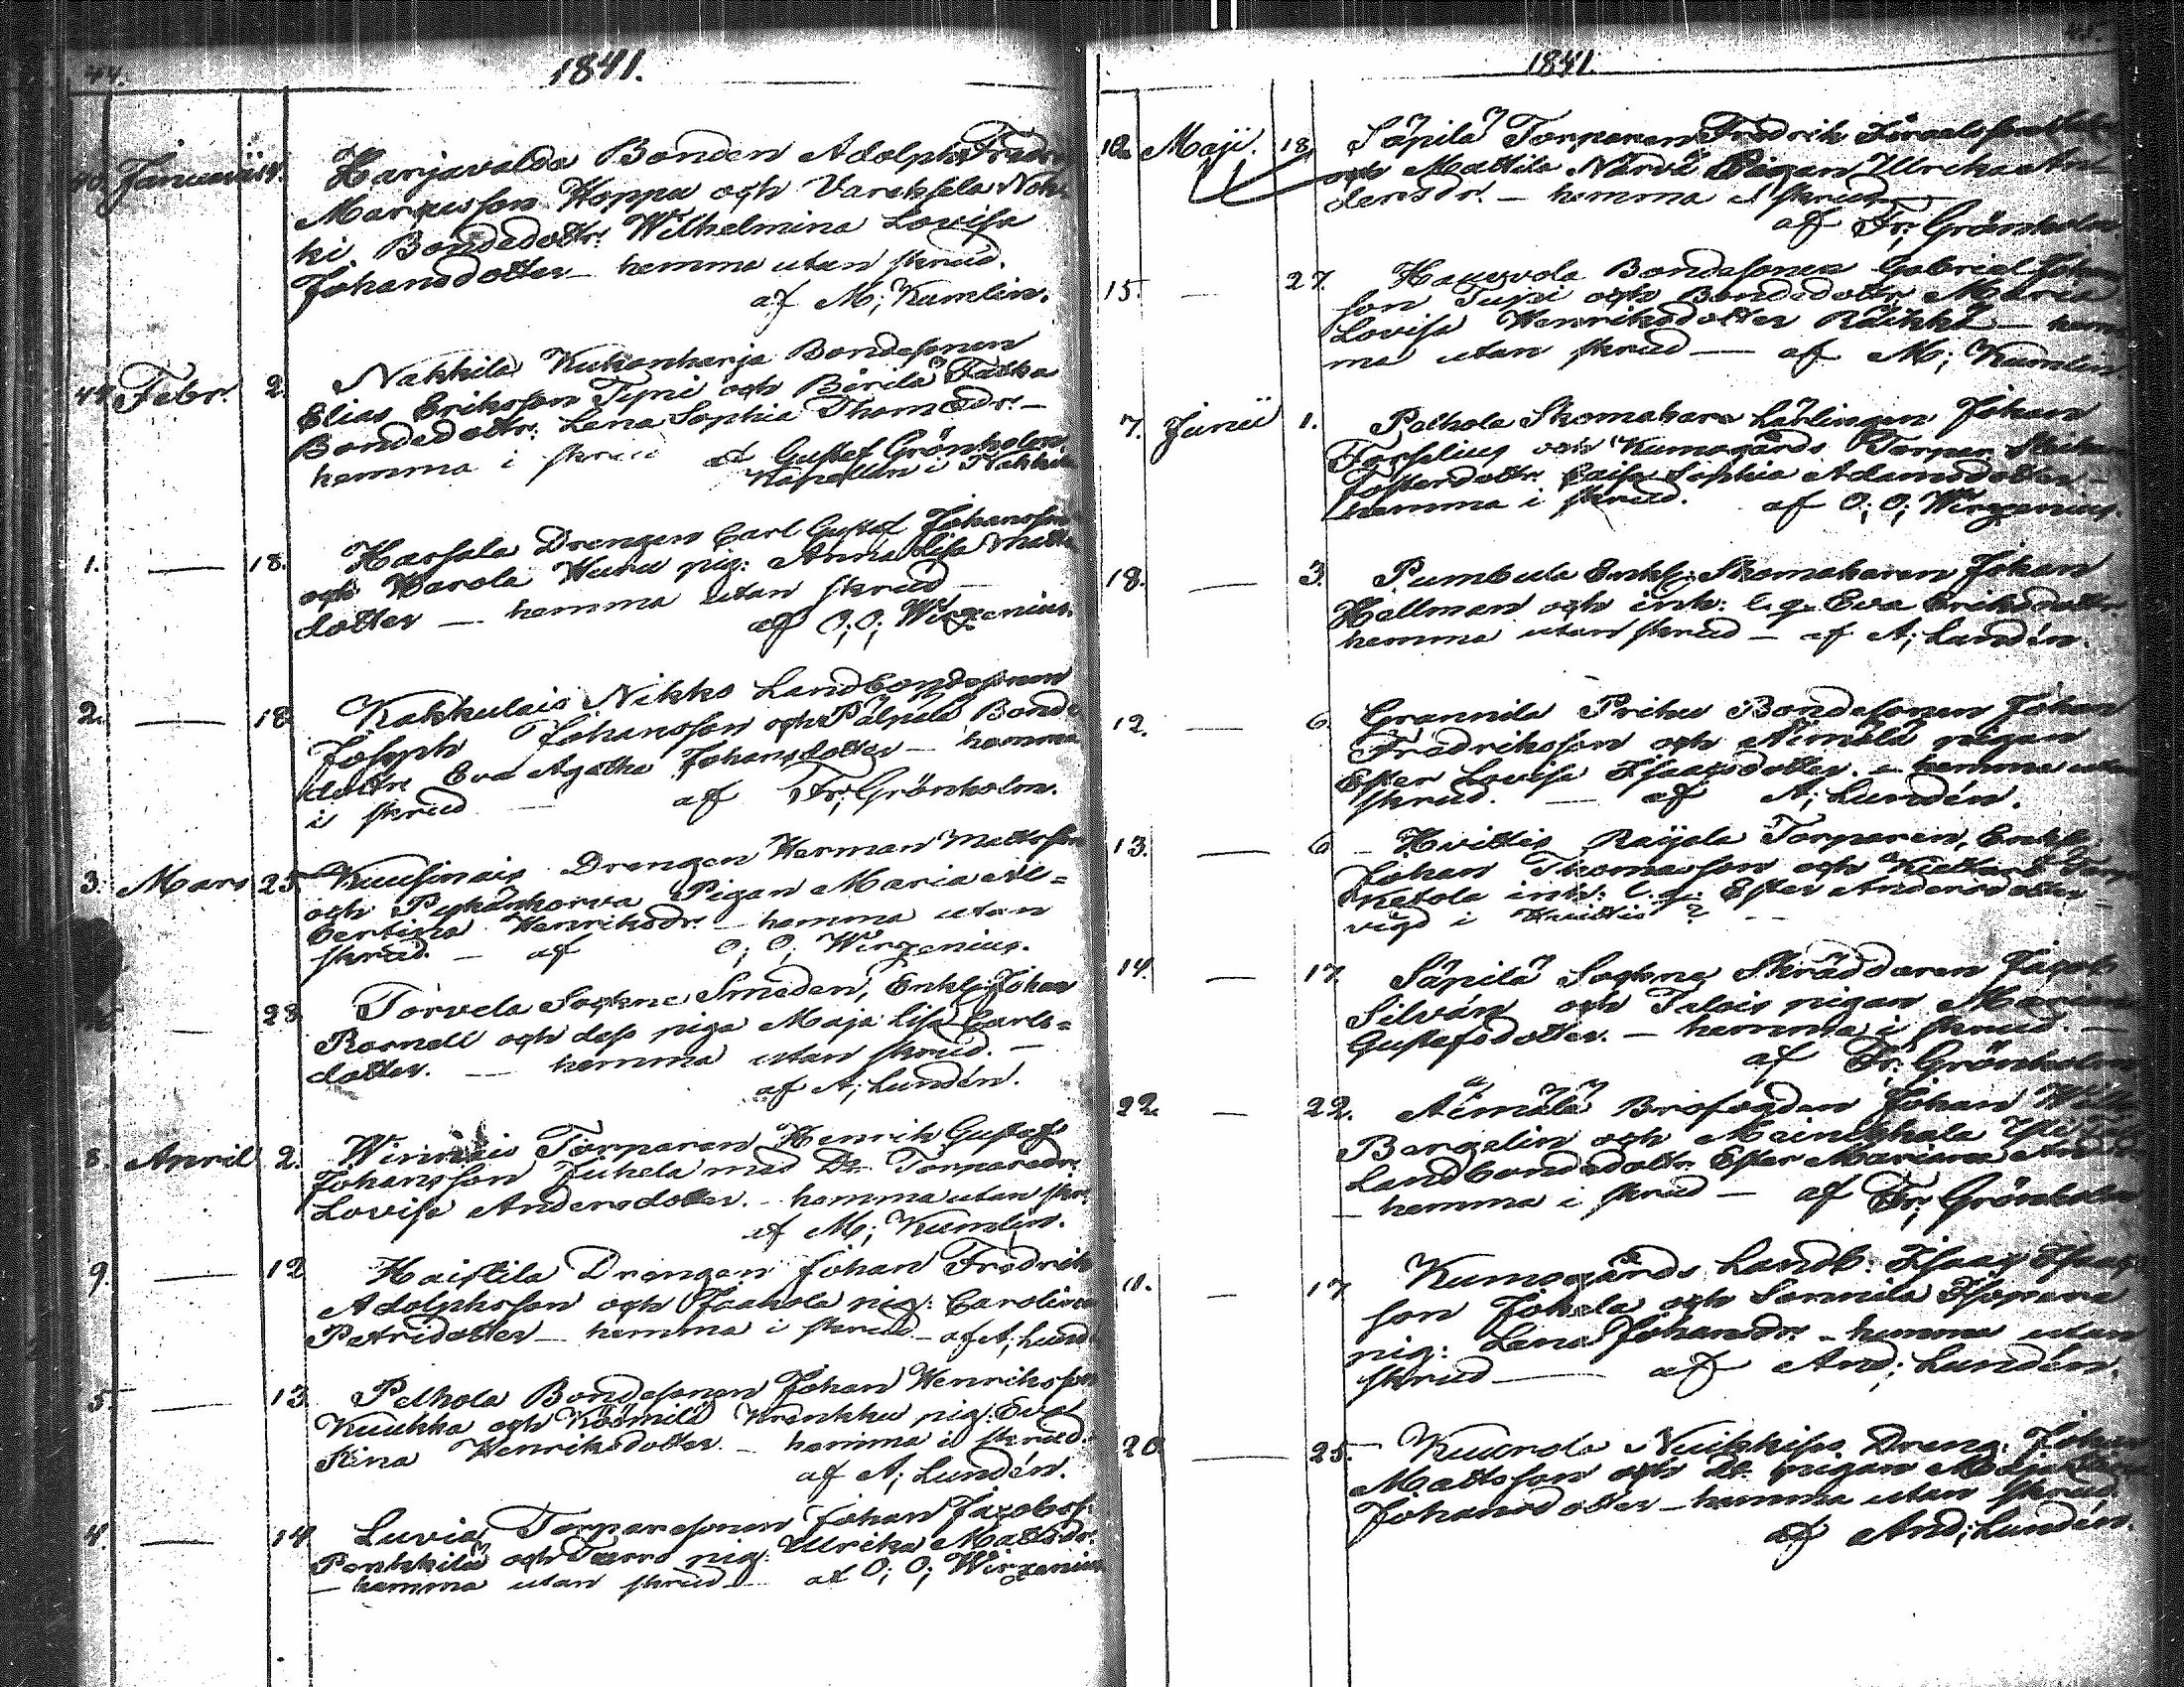 44.
1841.
40. Januarii 14. Harjavalda Bonden Adolph Fredr
Marcusson Hoppu och Vareksela Noh
ki Bondedottr. Wilhelmina Lovisa
Johansdotter – hemma utan skrud.
af M; Kumlin.
44 Febr. 2. Nakkila Kukonharja Bondesonen
Elias Eriksson Typi och Pirilä Tatka
Bondedottr. Lena Sophia Thomædr. –
hemma i skrud af Gustaf Grönholm
Kapellan i Nakkila
1. — 18. Harjala Drengen Carl Gustaf Johansson
och Warola Wuru pig: Anna Lisa Matts
dotter — hemma utan skrud —
af O; O; Wirzenius.
2. — 18 Kakkulais Nikko Landbondesonen
Joseph Johansson och Pälpälä Bonde
dottr Eva Agatha Johansdotter – hemma
i skrud — af Fr; Grönholm.
3. Mars 25 Kuusinais Drengen Herman Mattsson
och Pyhänkorva Pigan Maria Al=
bertina Henriksdr. – hemma utan
skrud. – af O; O; Wirzenius.
— 28 Torvela Sockne Smeden, Enkl: Johan
Rosnell och dess piga Maja Lisa Carls=
dotter. — hemma utan skrud. –
af A; Lundén.
8. April 2. Winnais Torparen Henrik Gustaf
Johansson Juhela med Do Torparedr.
Lovisa Andersdotter. – hemma utan skr.
af M; Kumlin.
9. — 12 Haistila Drengen Johan Fredrik
Adolphsson och Jaakola pig: Carolina
Petridotter – hemma i skrud – af A; Lund
5 — 13 Pelhola Bondesonen Johan Henriksson
Kuukka och Köömilä Krenkku pig: Eva
Stina Henriksdotter. – hemma i skrud.
af A; Lundén.
4. — 14 Luvia Torparesonen Johan Jacobs:
Penkkilä och Turro pig: Ulrika Mattsdr.
– hemma utan skrud – af O; O; Wirzenius
45.
1841.
10. Maji. 18. Säpilä Torparen Fredrik
och Mattila Närvä Pigan Ulrika An-
dersdr. – hemma i skrud
af Fr; Grönholm.
15. — 27. Haurvola Bondesonen Gabriel Johan
son Tupi och Bondedottr. Maria
Lovisa Henriksdotter Räikkä – hem
ma utan skrud — af M; Kumlin.
7. Junii 1. Pelhola Skomakare Lärlingen Johan
Forselius och Kumogårds Torpar
Fosterdottr. Caisa Sophia Adamsdotter –
hemma i skrud. af O; O; Wirzenius.
18. — 3. Pumbula Enkl: Skomakaren Johan
Hellman och inh: l.q. Eva Eriksdottr.
hemma utan skrud – af A; Lundén.
12. — 6 Grannila Prihu Bondesonen Johan
Fredriksson och Äimälä pigan
Ester Lovisa Isaacsdotter. – hemma utan
skrud. — af A; Lundén.
13. — 6 Hvittis Raijala Torparen, Enkl:
Johan Thomasson och Kiettare Torp
Ketola inh: l.q. Ester Andersdotter
vigd i Hvittis?
14. — 17. Säpilä Sockne Skräddaren Jacob
Silvén och Talois pigan Maria
Gustafsdotter. – hemma i skrud. —
af Fr; Grönholm
22. — 22. Äimälä Brofogden Johan Wilh
Bergelin och Meinikkala
Landbondedottr. Ester Mariana And
– hemma i skrud – af Fr; Grönholm
11. — 17 Kumogårds Landb: Isaac Isaac
son Jokela och Sonnila Isoprana
pig: Lena Johansdr. – hemma utan
skrud — af And; Lundén.
20 — 25. Kuurola Nuikkiss Dreng: Johan
Mattsson och Do pigan Maja
Johansdotter – hemma utan skrud.
af And; Lundén.